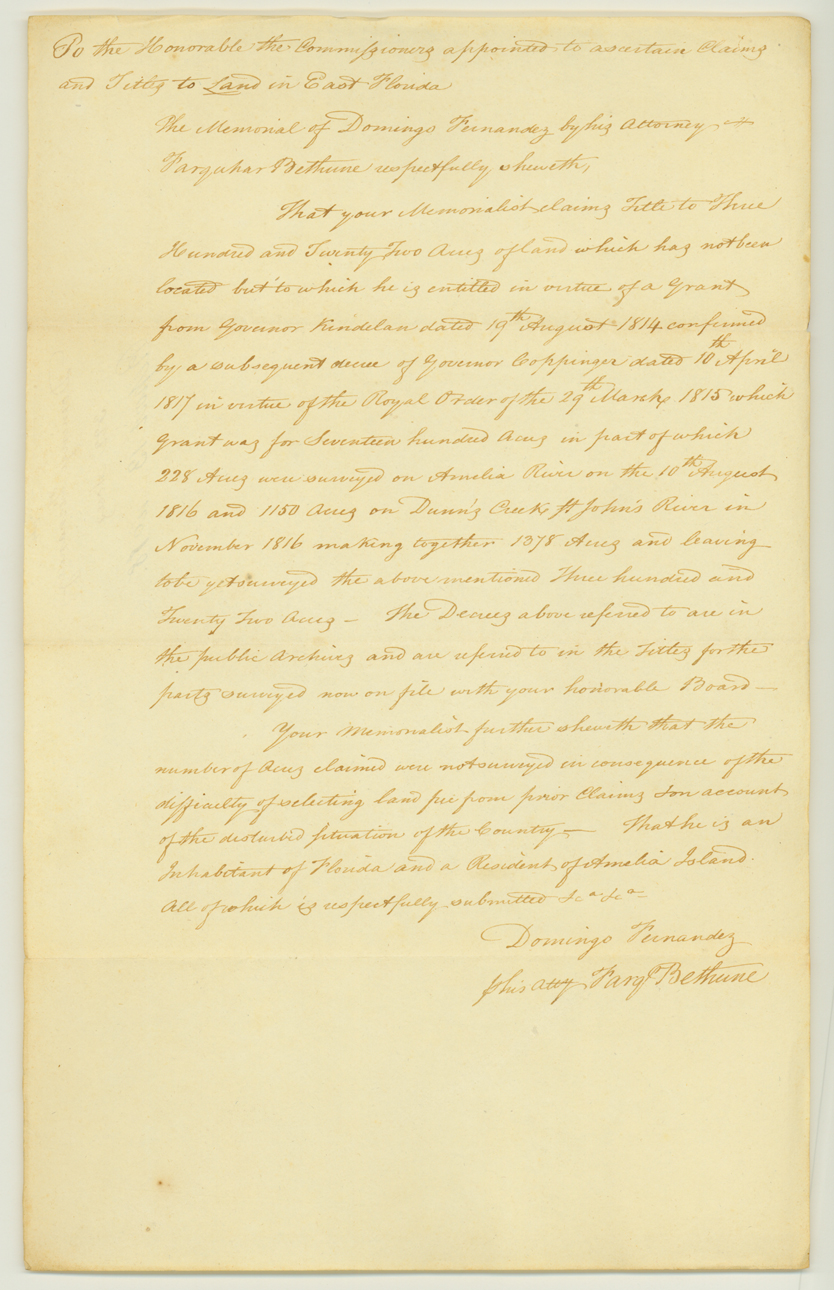 To the Honorable the Commissioners appointed to ascertain Claims
and Titles to Land in East Florida
The Memorial of Domingo Fernandez by his Attorney
Farquhar Bethune respectfully sheweth,
That your Memorialist claims Title to Three
Hundred and Twenty Two Acres of land which has not been
located but to which he is entitled in virtue of a Grant
from Governor Kindelan dated 19th August 1814 confirmed
by a subsequent decree of Governor Coppinger dated 10th April
1817 in virtue of the Royal Order of the 29th March 1815 which
Grant was for Seventeen hundred Acres in part of which
228 Acres were surveyed on Amelia River on the 10th August
1816 and 1150 Acres on Dunn's Creek St John's River in
November 1816 making together 1378 Acres and leaving
to be yet surveyed the above mentioned Three hundred and
Twenty Two Acres — The Decrees above referred to are in
the public Archives and are referred to in the Titles for the
parts surveyed now on file with your honorable Board —
Your Memorialist further sheweth that the
number of Acres claimed were not surveyed in consequence of the
difficulty of selecting land free from prior Claims & on account
of the disturbed situation of the Country — That he is an
Inhabitant of Florida and a Resident of Amelia Island.
All of which is respectfully submitted &ca &ca
Domingo Fernandez
p his Atty Farqr Bethune